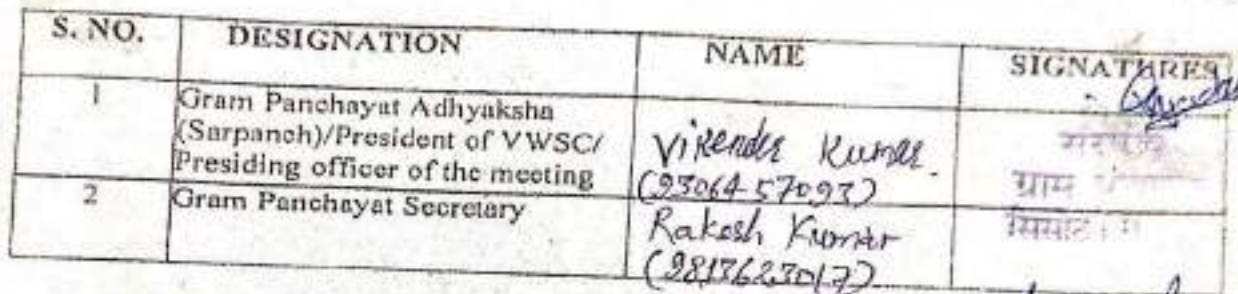 S. NO. DESIGNATION NAME SIGNATHRES
1 Gram Panchayat Adhyaksha
(Sarpanch)/President of VWSC/
Presiding officer of the meeting
Virender Kumar.
(93064-57093)
सरपंच
ग्राम
2 Gram Panchayat Secretary
Rakesh Kumar
(9813623017)